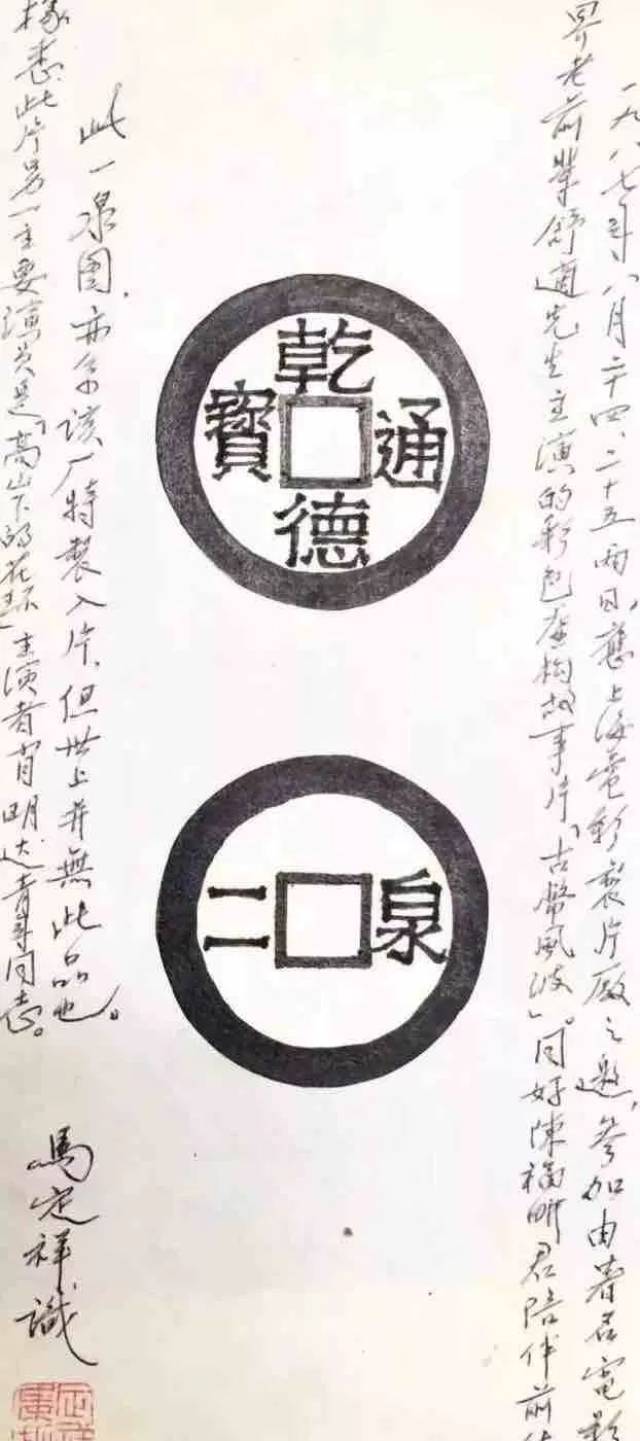 一九八七年八月二十四、二十五兩日,應上海電影製片廠之邀,參加由著名電影
界老前輩舒適先生主演的彩色虛构故事片「古幣風波」。同好陳福畊君陪伴前
乾德通寶
泉二
此一泉图,亦系该厂特製入片,但世上并無此品也。
據悉此片另一主要演员是「高山下的花环」主演者肖明达青年同志。
馬定祥識